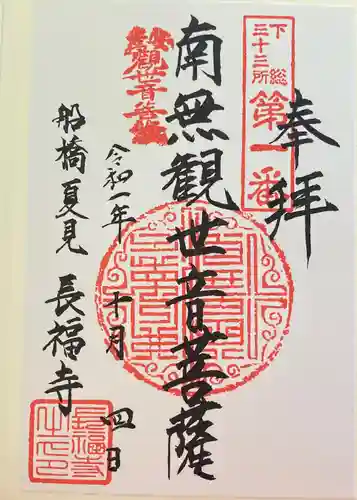 奉拝
下総三十三所
第一番
南無観世音菩薩
令和一年 十月 四日
船橋夏見 長福寺